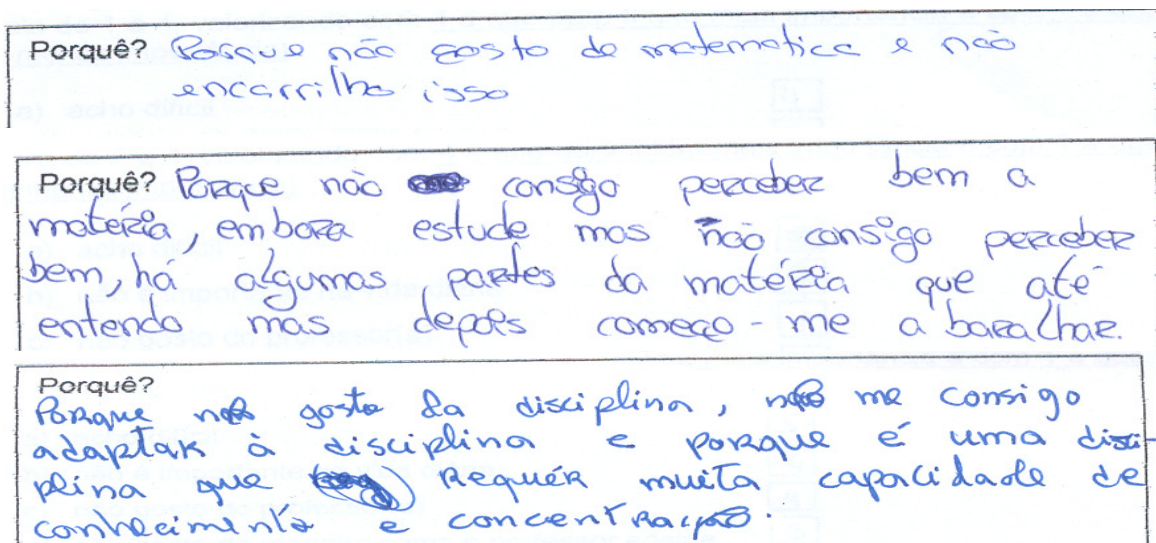 Porquê? Porque não gosto de matematica e não
encarrilho isso
Porquê? Porque não consigo perceber bem a
matéria, embora estude mas não consigo perceber
bem, há algumas partes da matéria que até
entendo mas depois começo-me a baralhar.
Porquê?
Porque não gosto da disciplina, não me consigo
adaptar à disciplina e porque é uma disci-
plina que requér muita capacidade de
conhecimento e concentração.